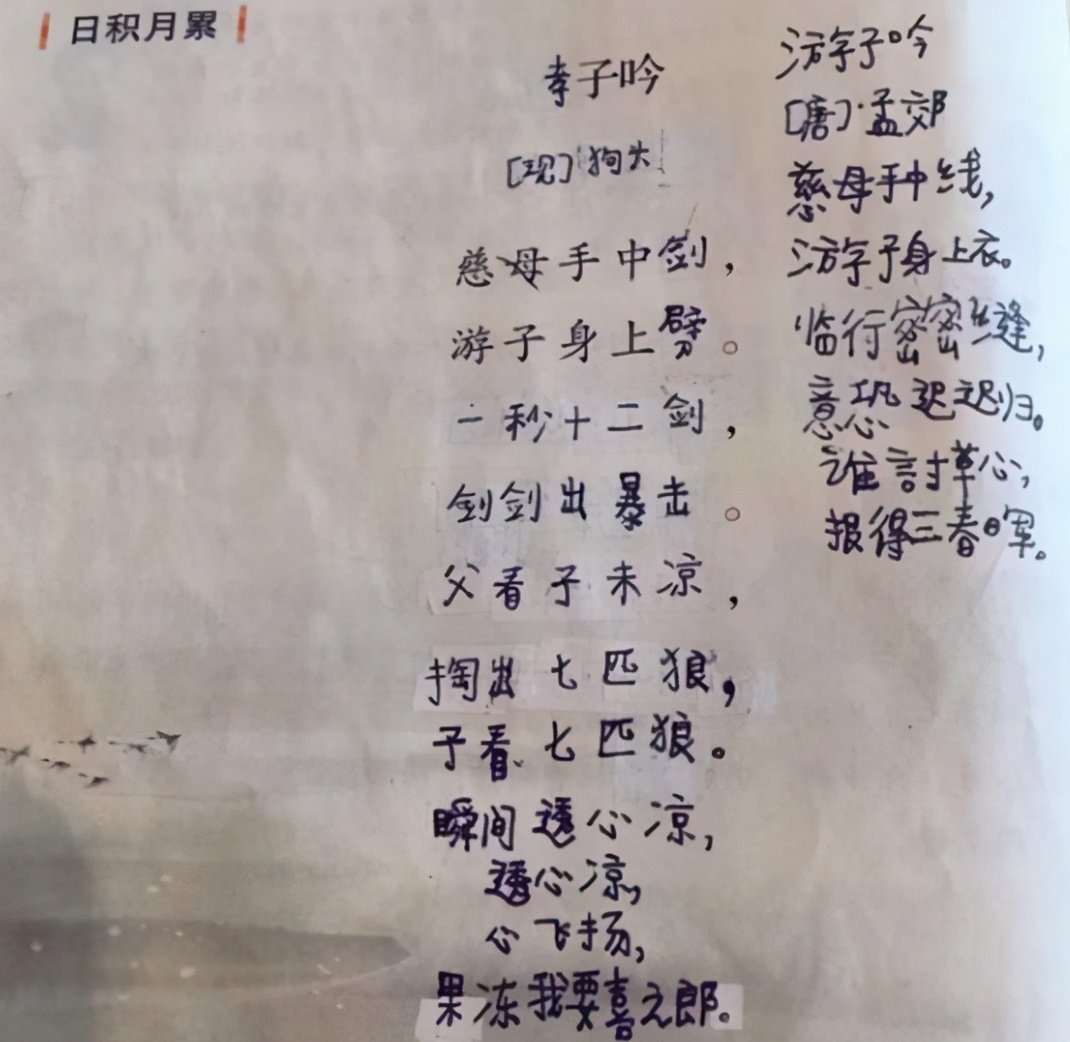 日积月累
孝子吟
[现]狗大
慈母手中剑，
游子身上劈。
一秒十二剑，
剑剑出暴击。
父看子未凉，
掏出七匹狼，
子看七匹狼。
瞬间透心凉，
透心凉，
心飞扬，
果冻我要喜之郎。
游子吟
[唐]·孟郊
慈母手中线，
游子身上衣。
临行密密缝，
意恐迟迟归。
谁讨草心，
报得三春晖。